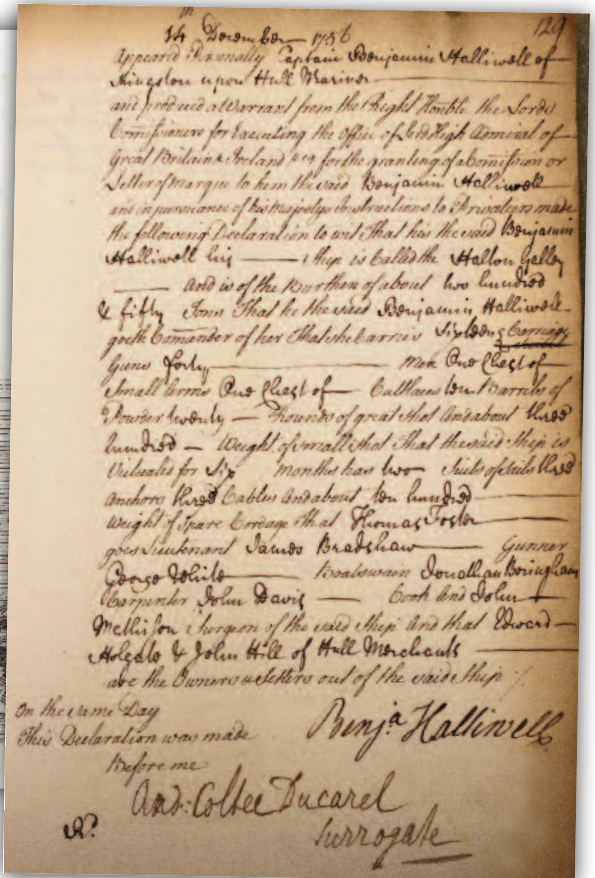 129
14th December 1756
Appeared Personally Captain Benjamin Halliwell of
Kingston upon Hull Mariner
and produced a Warrant from the Right Honble the Lords
Comissioners for Executing the Office of Lord High Admiral of
Great Britain & Ireland &ca for the granting of a Comission or
Letter of Marque to him the said Benjamin Halliwell
and in pursuance of his Majestys Instructions to Privateers made
the following Declaration to wit That his the said Benjamin
Halliwell his Ship is Called the Halton Galley
And is of the Burthen of about two hundred
& fifty Tons That he the said Benjamin Halliwell
goeth Comander of her That she Carries Sixteen Carriage
Guns forty Men One Chest of
Small Arms One Chest of Cutlaces ten Barrels of
Powder twenty Rounds of great Shot And about three
hundred Weight of small shot That the said Ship is
Victualed for Six Months has two Suits of Sails three
Anchors three Cables And about ten hundred
Weight of Spare Cordage That Thomas Foster
goes Lieutenant James Bradshaw Gunner
George White Boatswain Jonathan Beringham
Carpenter John Davis Cook And John
Mathison Surgeon of the said Ship And that Edward
Holgate & John Hill of Hull Merchants
are the Owners & Setters out of the said Ship
On the same Day
This Declaration was made
Before me
Benja Halliwell
And: Coltee Ducarel
Surrogate